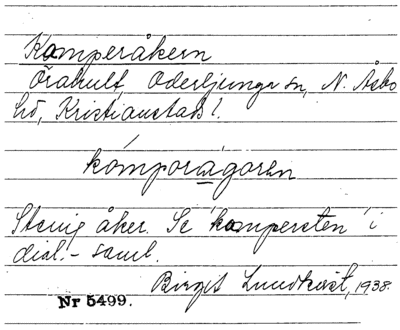 Komperåkern
Örahult, Oderljunga sn, N. Åsbo
hd, Kristianstads l.
kómporågoren
Stenig åker. Se "kampersten" i
dial.-saml.
Birgit Lundkvist, 1938.
Nr 5499.